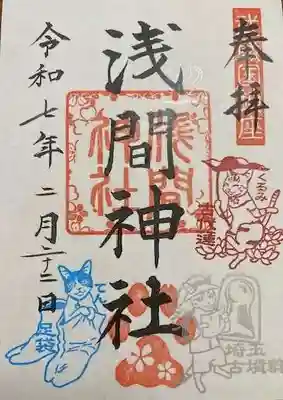 奉拝
浅間神社
令和七年二月二十二日
浅間神社
くるみ
てん
足袋
埼玉
古墳群